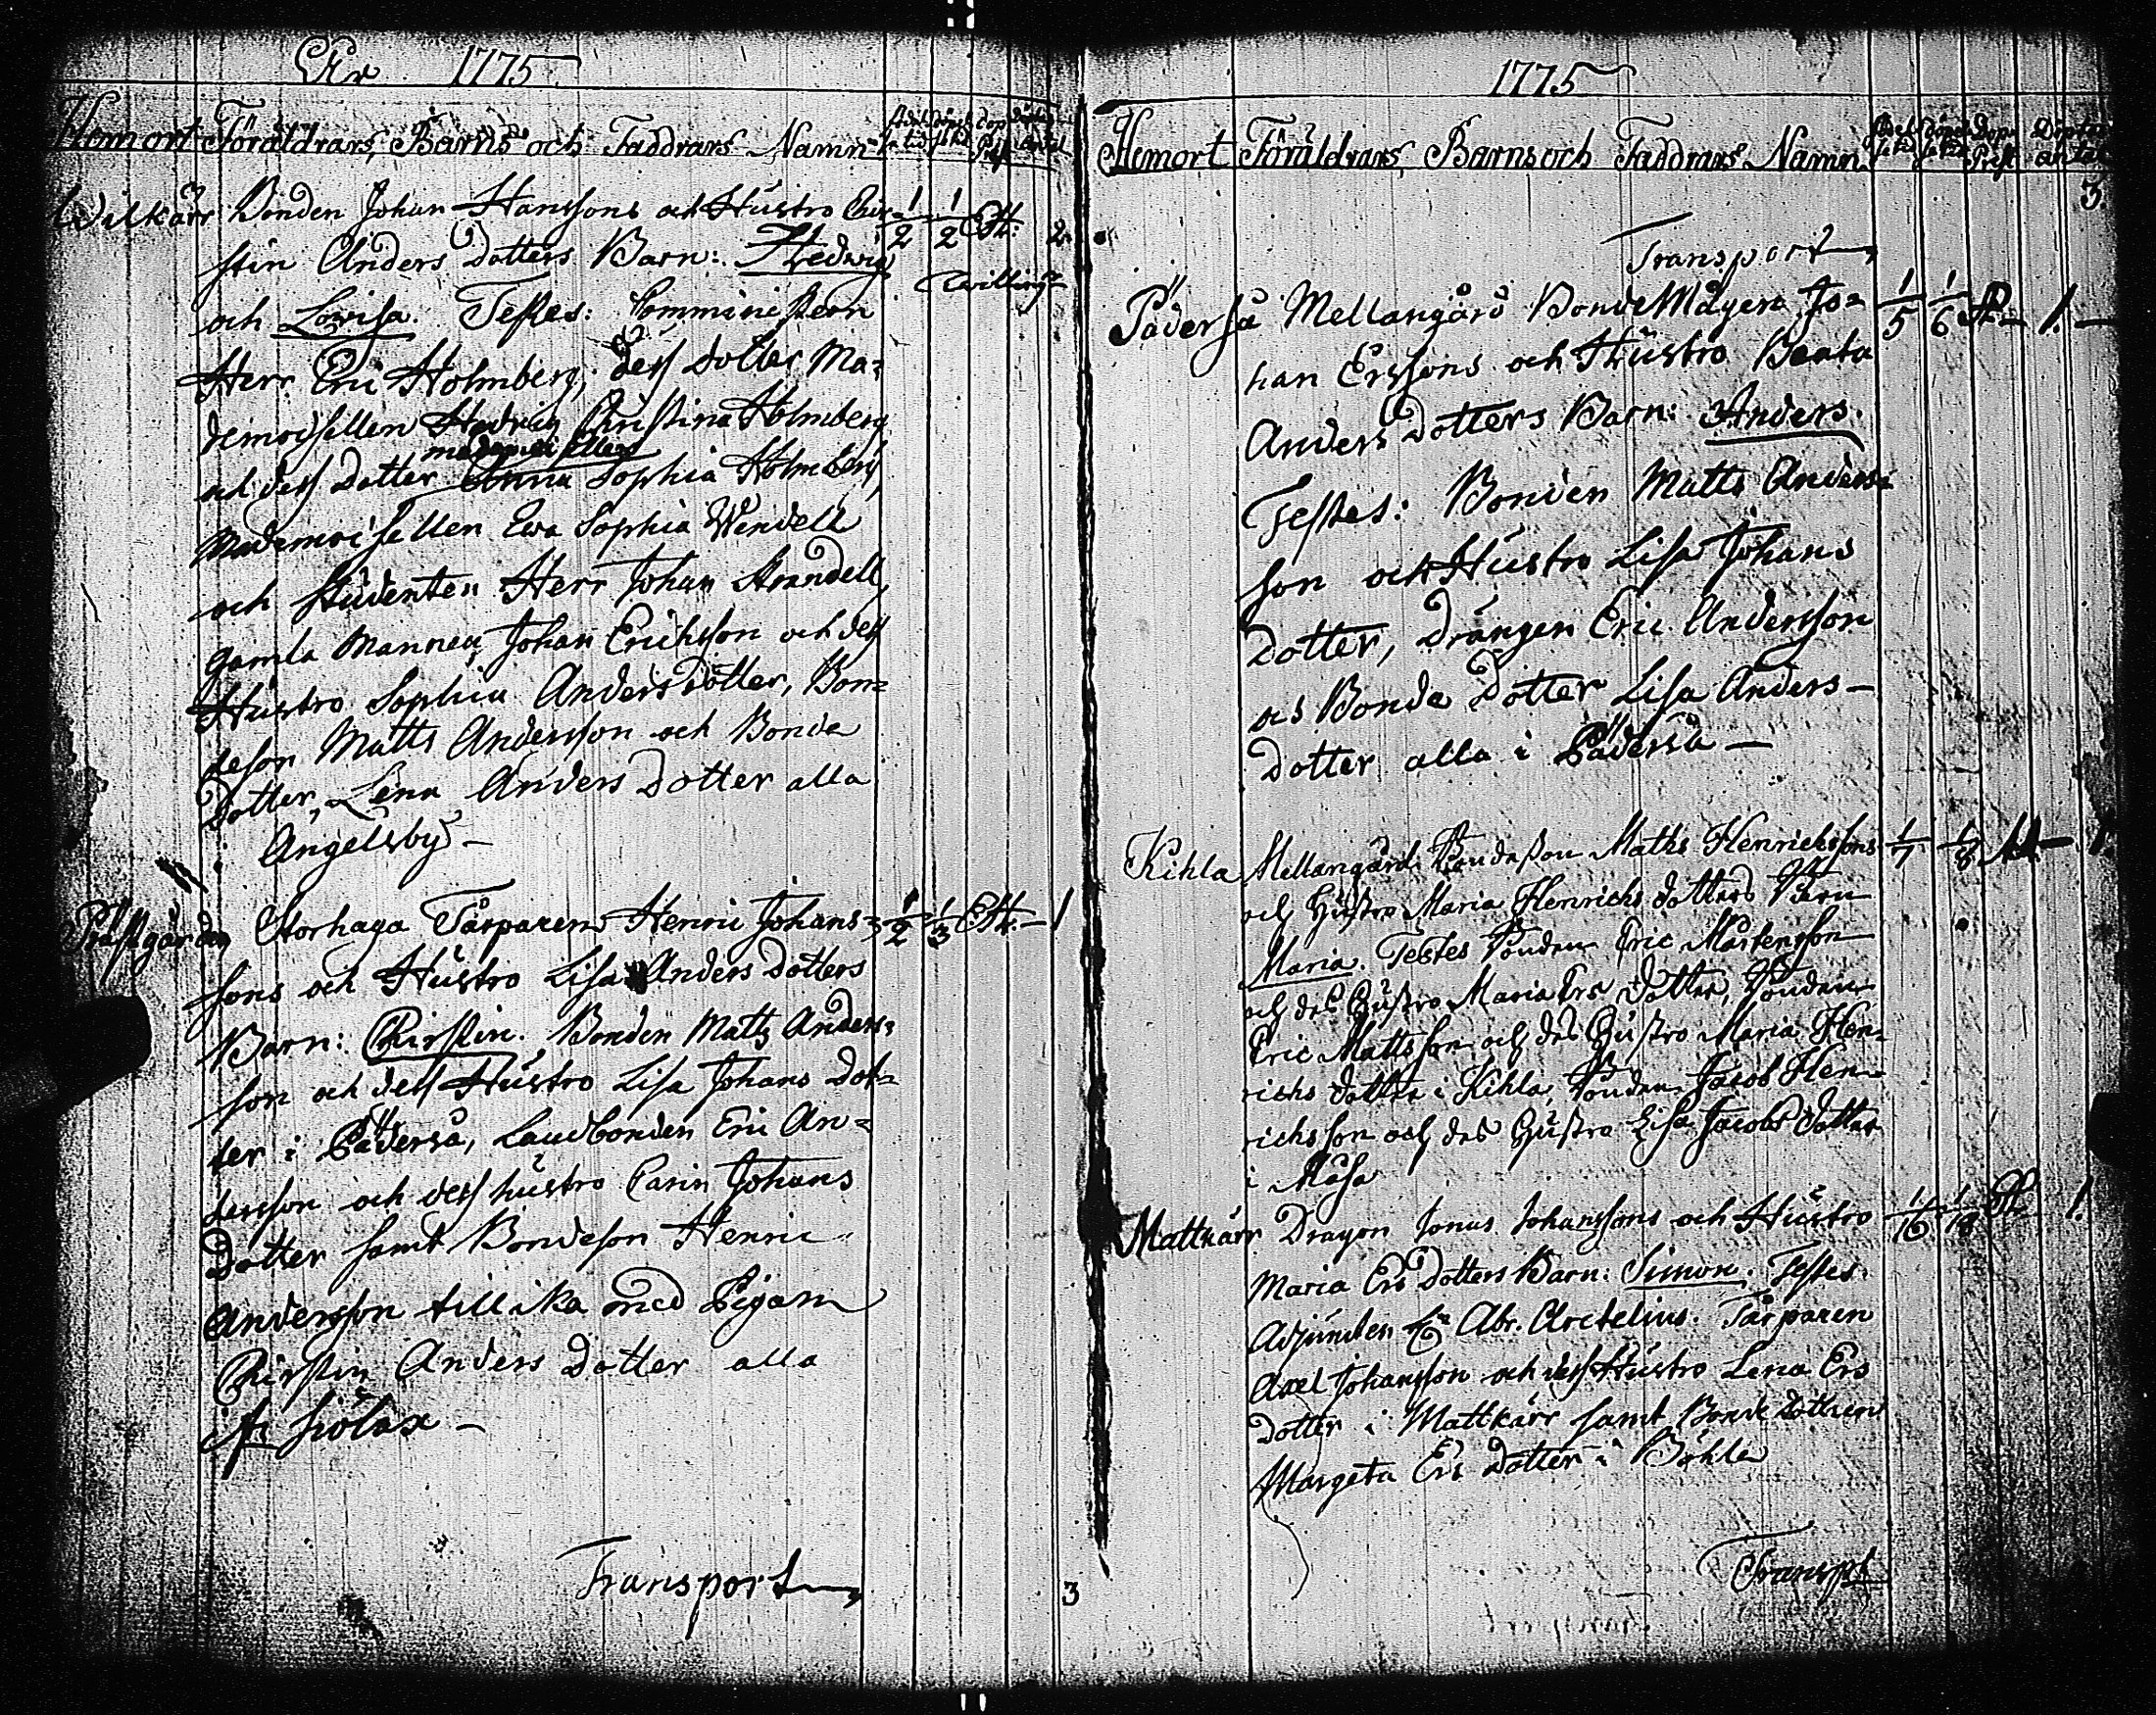 År 1775
Hemort Föräldrars, Barns och Faddrars Namn
Wilkärr Bonden Johan Hanssons och Hustro Chir= 1/2 1/2 EH: 2.
stin Anders Dotters Barn: Hedwig
Twilling
och Lovisa. Testes: Comministern
Herr Eric Holmberg, dess dotter Ma=
demoisellen Hedwig Christina Holmberg
mademoisellen
och dess Dotter Anna Sophia Holmberg,
Mademoisellen Ewa Sophia Wendell
och Studenten Herr Johan Strandell,
gamla Mannen Johan Erichsson och dess
Hustro Sophia Andersdotter, Bon=
deson Matts Andersson och Bonde
Dotter, Lena Anders Dotter alla
i Angelsby –
Prästgården Storhaga Tårparens Henric Johans= 1/2 1/3 EH. – 1
sons och Hustro Lisa Anders Dotters
Barn: Chirstin. Bonden Matts Anders=
son och dess Hustro Lisa Johans Dot=
ter i Päderså, Landbonden Eric An=
dersson och dess hustro Carin Johans
Dotter samt Bondeson Henric
Andersson tillika med Pigan
Chirstin Anders Dotter alla
i Fr sjölax –
Transport
3
1775
Hemort Föräldrars, Barns och Faddrars Namn
3.
Transport
Päderså Mellangård BondeMågen Jo= 1/5 1/6 – 1. –
han Erssons och Hustro Beata
Anders Dotters Barn: Anders.
Testes: Bonden Matts Anders=
son och Hustro Lisa Johans
Dotter, Drängen Eric Andersson
och Bonde Dotter Lisa Anders–
Dotter alla i Päderså –
Kihla Mellangård Bondeson Maths Henrichssons 1/7 1/8 1.
och Hustro Maria Henrichs dotters Barn
Maria. Testes Bonden Eric Mårtensson
och des Hustro Maria Ers dotter, Bonden
Eric Mattsson och des Hustro Maria Hen=
richs dotter i Kihla, Bonden Jacob Hen=
richsson och des Hustro Lisa Jacobs dotter
i Måsa
Mattkärr Dragon Jonas Johanssons och Hustro 1/16 1/18 1.
Maria Ers Dotters Barn: Simon. Testes.
Adjuncten Hr Abr. Arctelius. Tårparen
Axel Johansson och dess Hustro Lena Ers
Dotter i Mattkärr samt Bonde Dottren
Margeta Ers Dotter i Böhle
Transpt